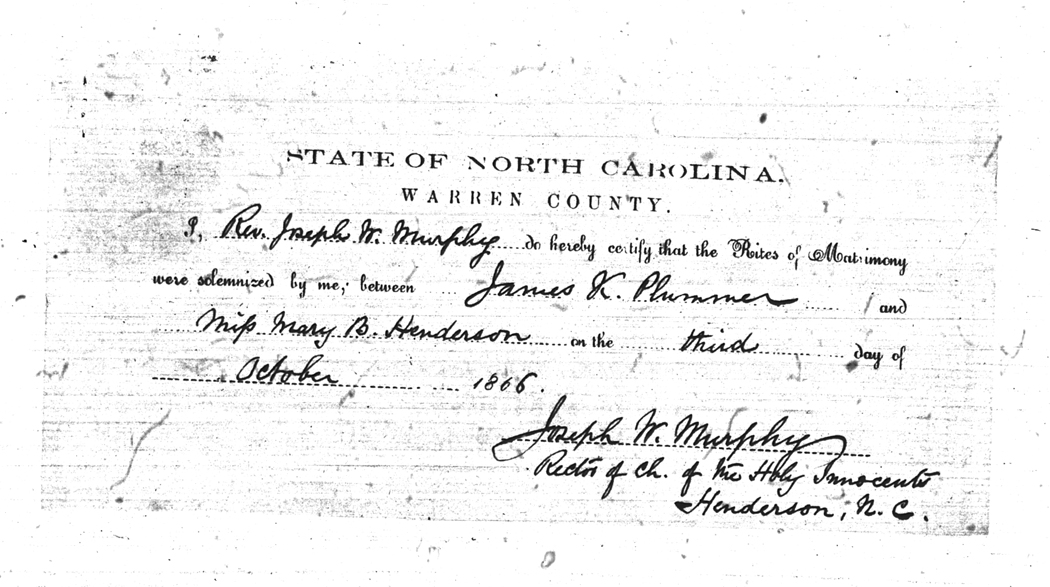 STATE OF NORTH CAROLINA.
WARREN COUNTY.
I, Rev. Joseph W. Murphy do hereby certify that the Rites of Matrimony
were solemnized by me, between James K. Plummer and
Miss Mary B. Henderson on the third day of
October 1866.
Joseph W. Murphy
Rector of Ch. of the Holy Innocents
Henderson, N. C.